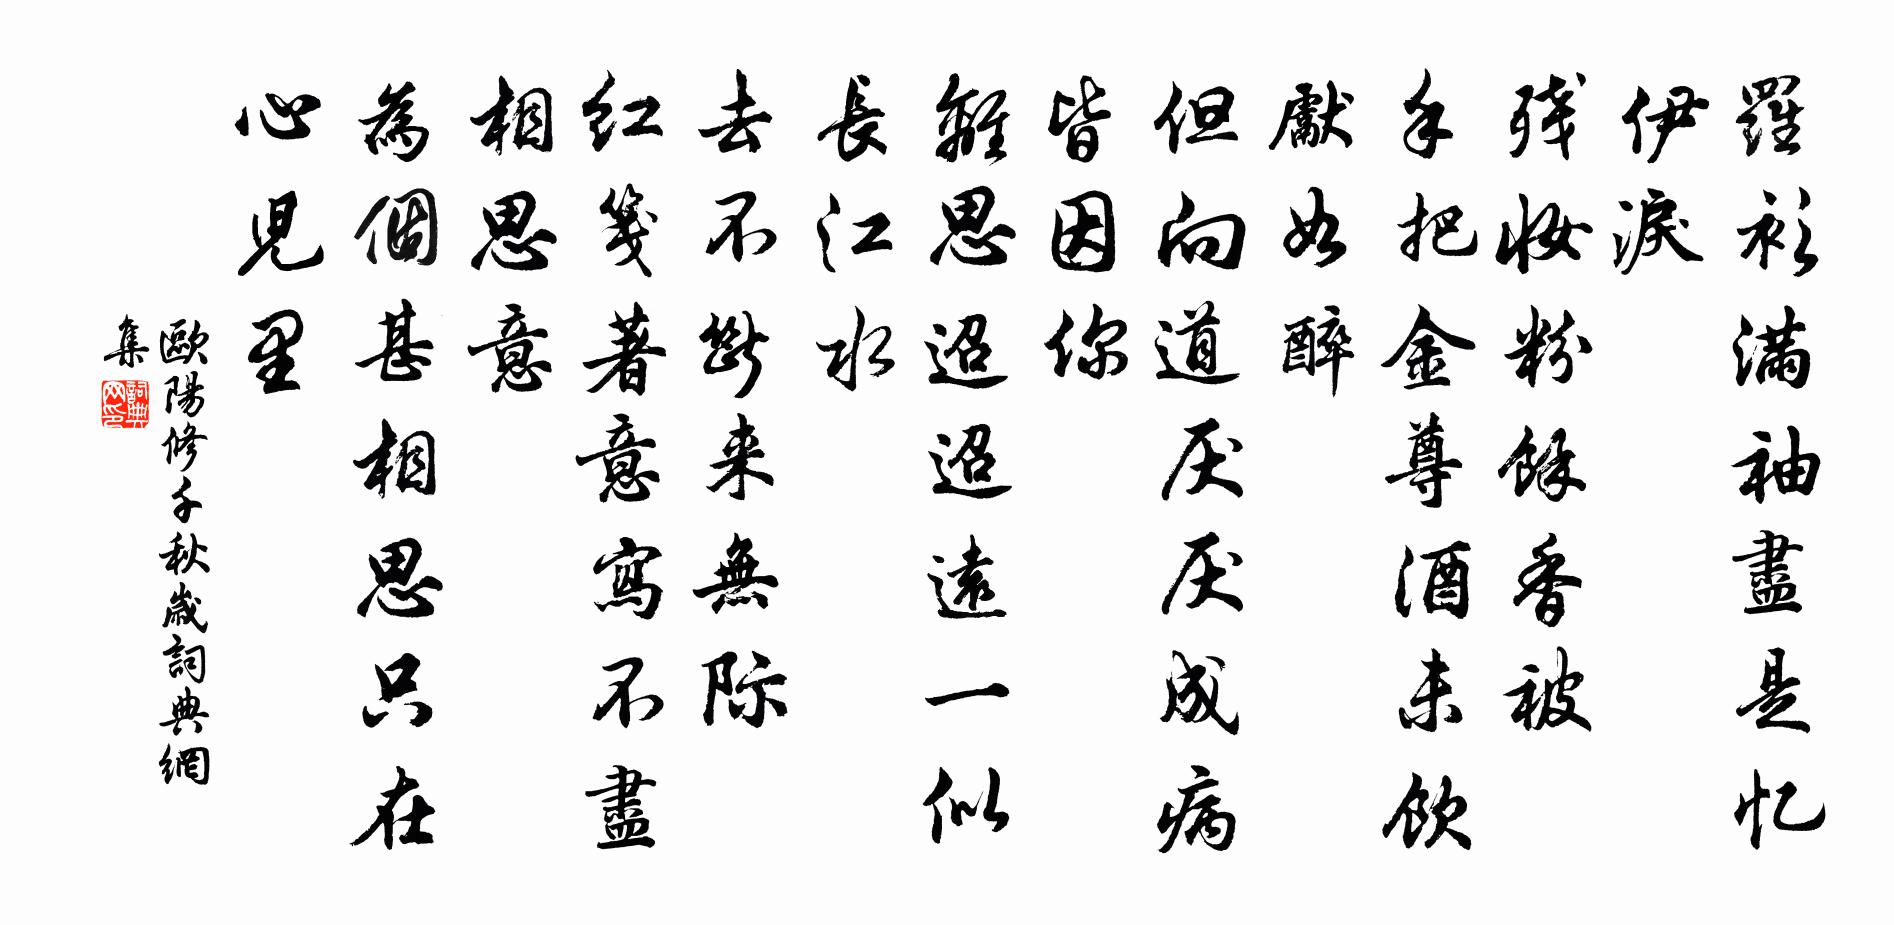 羅衫满袖盡是忆
伊淚
残妆粉餘香被
手把金尊酒未飲
獻如醉
但向道厌厌成病
皆因你
離思迢迢遠一似
長江水
去不斷来無际
红箋著意寫不盡
相思意
為個甚相思只在
心児里
歐陽修千秋歲詞典網
集
詞典网印